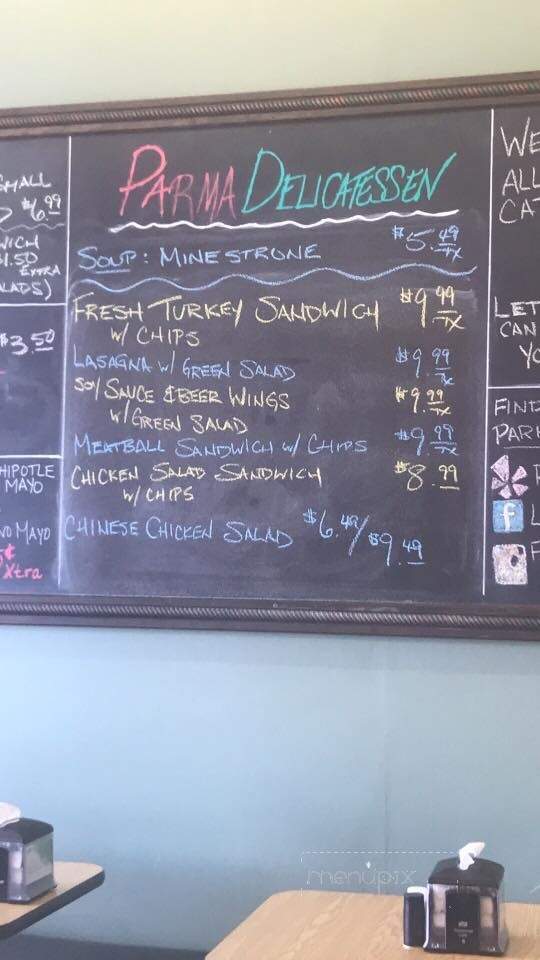 PARMA DELICATESSEN
SOUP: MINESTRONE $5.49 +TX
FRESH TURKEY SANDWICH $9.99 +TX
W/ CHIPS
LASAGNA W/ GREEN SALAD $9.99 TX
SOY SAUCE & BEER WINGS $9.99 +TX
W/ GREEN SALAD
MEATBALL SANDWICH W/ CHIPS $9.99 TX
CHICKEN SALAD SANDWICH $8.99
W/ CHIPS
CHINESE CHICKEN SALAD $6.49/$9.49
SMALL
$6.99
WICH
$1.50
EXTRA
LADS)
$3.50
HIPOTLE
MAYO
NO MAYO
¢
Xtra
WE
ALL
CAT
LET
CAN
YO
FIND
PAR
f L
F
menupix